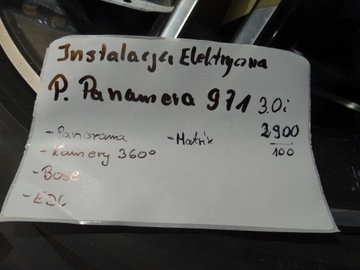 Instalacja Elektryczna
P. Panamera 971 3.0i
- Panorama - Matrix 2900
- Kamery 360° 100
- Bose